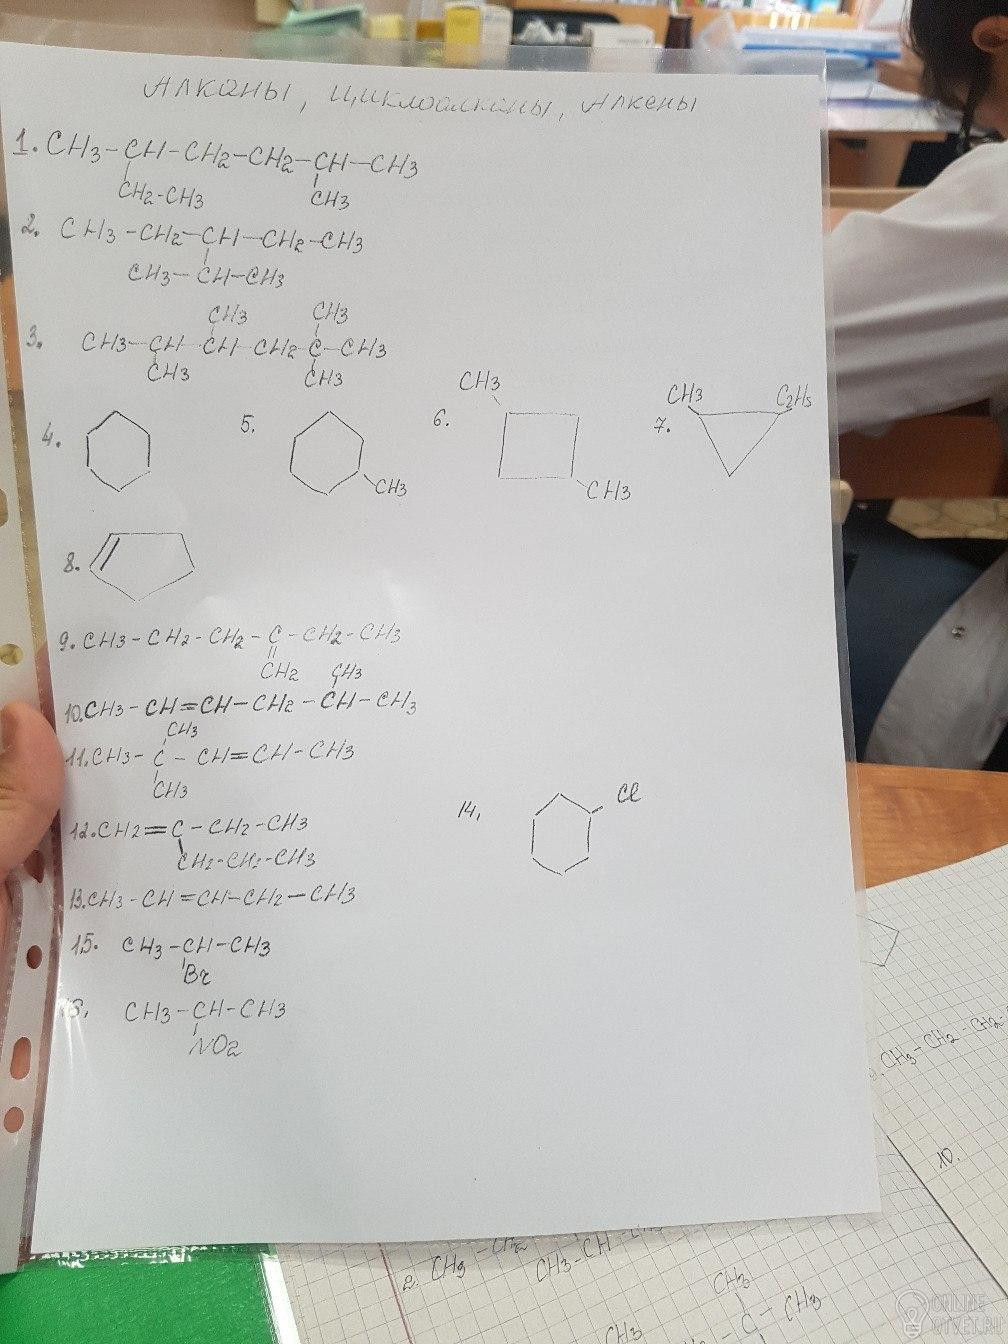 Алканы, Циклоалканы, Алкены
1. CH3-CH-CH2-CH2-CH-CH3
CH2-CH3 CH3
2. CH3-CH2-CH-CH2-CH3
CH3-CH-CH3
CH3 CH3
3. CH3-CH CH CH2 C-CH3
CH3 CH3
4. 5. 6. CH3 7. CH3 C2H5
CH3 CH3
8.
9. CH3-CH2-CH2-C-CH2-CH3
CH2 CH3
10. CH3-CH=CH-CH2-CH-CH3
CH3
11. CH3-C-CH=CH-CH3
CH3
14. Cl
12. CH2=C-CH2-CH3
CH2-CH2-CH3
13. CH3-CH=CH-CH2-CH3
15. CH3-CH-CH3
Br
CH3-CH-CH3
NO2
CH3-CH2-CH2
10.
2. CH3-CH2
CH3-CH
CH3
C-CH3
CH3
ONLINE